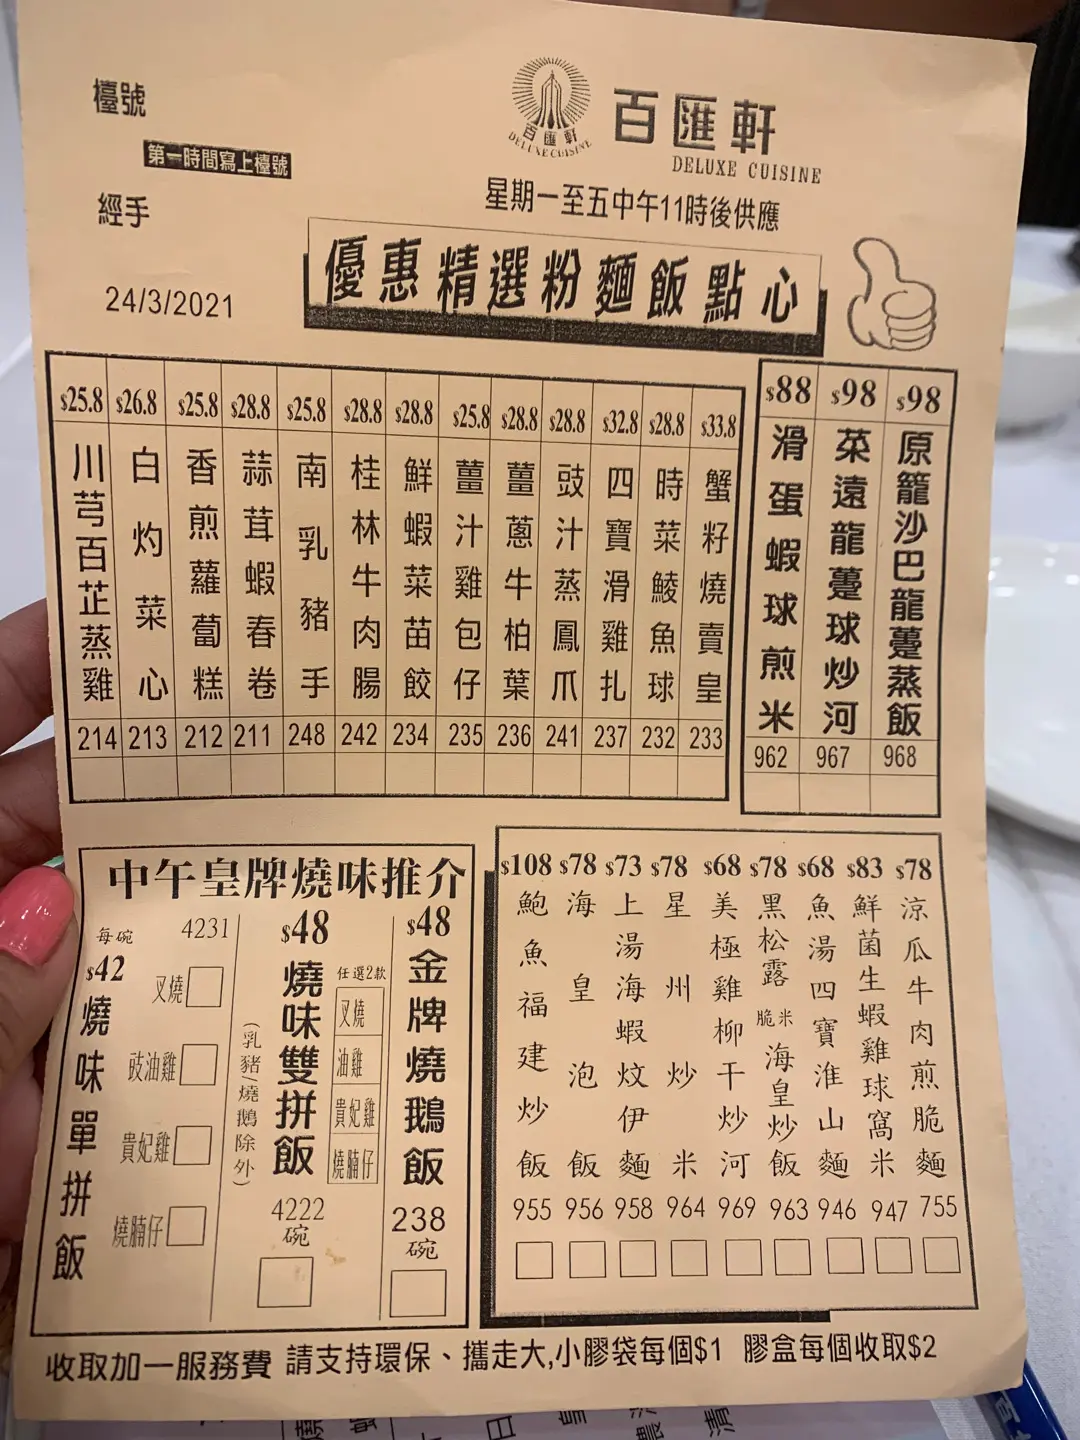 臺號
第一時間寫上檯號
經手
24/3/2021
百匯軒
DELUXE CUISINE
百匯軒
DELUXE CUISINE
星期一至五中午11時後供應
優惠精選粉麵飯點心
$25.8 川芎百芷蒸雞 214
$26.8 白灼菜心 213
$25.8 香煎蘿蔔糕 212
$28.8 蒜茸蝦春卷 211
$25.8 南乳豬手 248
$28.8 桂林牛肉腸 242
$28.8 鮮蝦菜苗餃 234
$25.8 薑汁雞包仔 235
$28.8 薑蔥牛柏葉 236
$28.8 豉汁蒸鳳爪 241
$32.8 四寶滑雞扎 237
$28.8 時菜鯪魚球 232
$33.8 蟹籽燒賣皇 233
$88 滑蛋蝦球煎米 962
$98 菜遠龍躉球炒河 967
$98 原籠沙巴龍躉蒸飯 968
中午皇牌燒味推介
每碗 4231
$42
燒味單拼飯
叉燒
豉油雞
貴妃雞
燒腩仔
$48
燒味雙拼飯
(乳豬/燒鵝除外)
任選2款
叉燒
油雞
貴妃雞
燒腩仔
4222
碗
$48
金牌燒鵝飯
238
碗
$108 鮑魚福建炒飯 955
$78 海皇泡飯 956
$73 上湯海蝦炆伊麵 958
$78 星州炒米 964
$68 美極雞柳干炒河 969
$78 黑松露脆米海皇炒飯 963
$68 魚湯四寶淮山麵 946
$83 鮮菌生蝦雞球窩米 947
$78 涼瓜牛肉煎脆麵 755
收取加一服務費 請支持環保、攜走大,小膠袋每個$1 膠盒每個收取$2